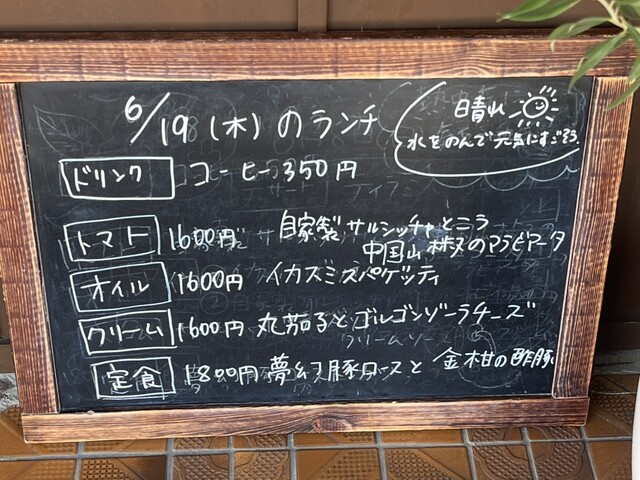 6/19(木)のランチ
晴れ
水をのんで元気にすごそう
ドリンク コーヒー350円
トマト 1600円 自家製サルシッチャとニラ
中国山椒のアラビアータ
オイル 1600円 イカスミスパゲッティ
クリーム 1600円 丸茄子とゴルゴンゾーラチーズ
定食 1800円 夢幻豚ロースと金柑の酢豚